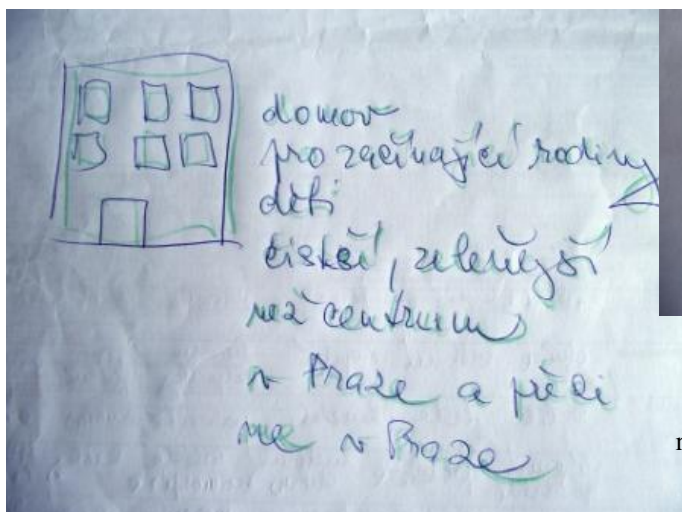 domov
pro začínající rodiny
děti
čistší, zelenější
než centrum
v Praze a přeci
ne v Praze